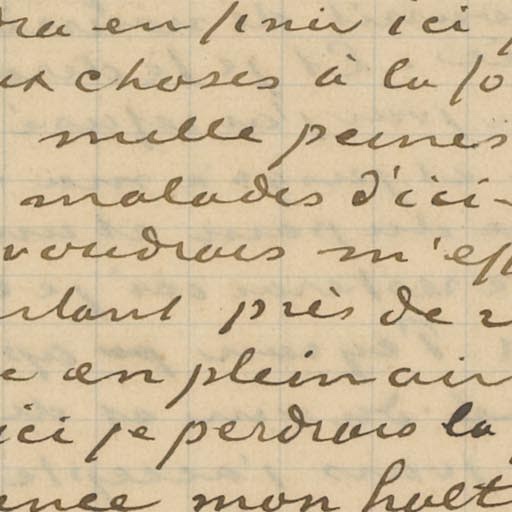 ra en finir ici
ux choses à la fo
mille peines
malades d'ici-
voudrais m'ef
rtant près de
e en plein air
ici je perdrais la
ence mon